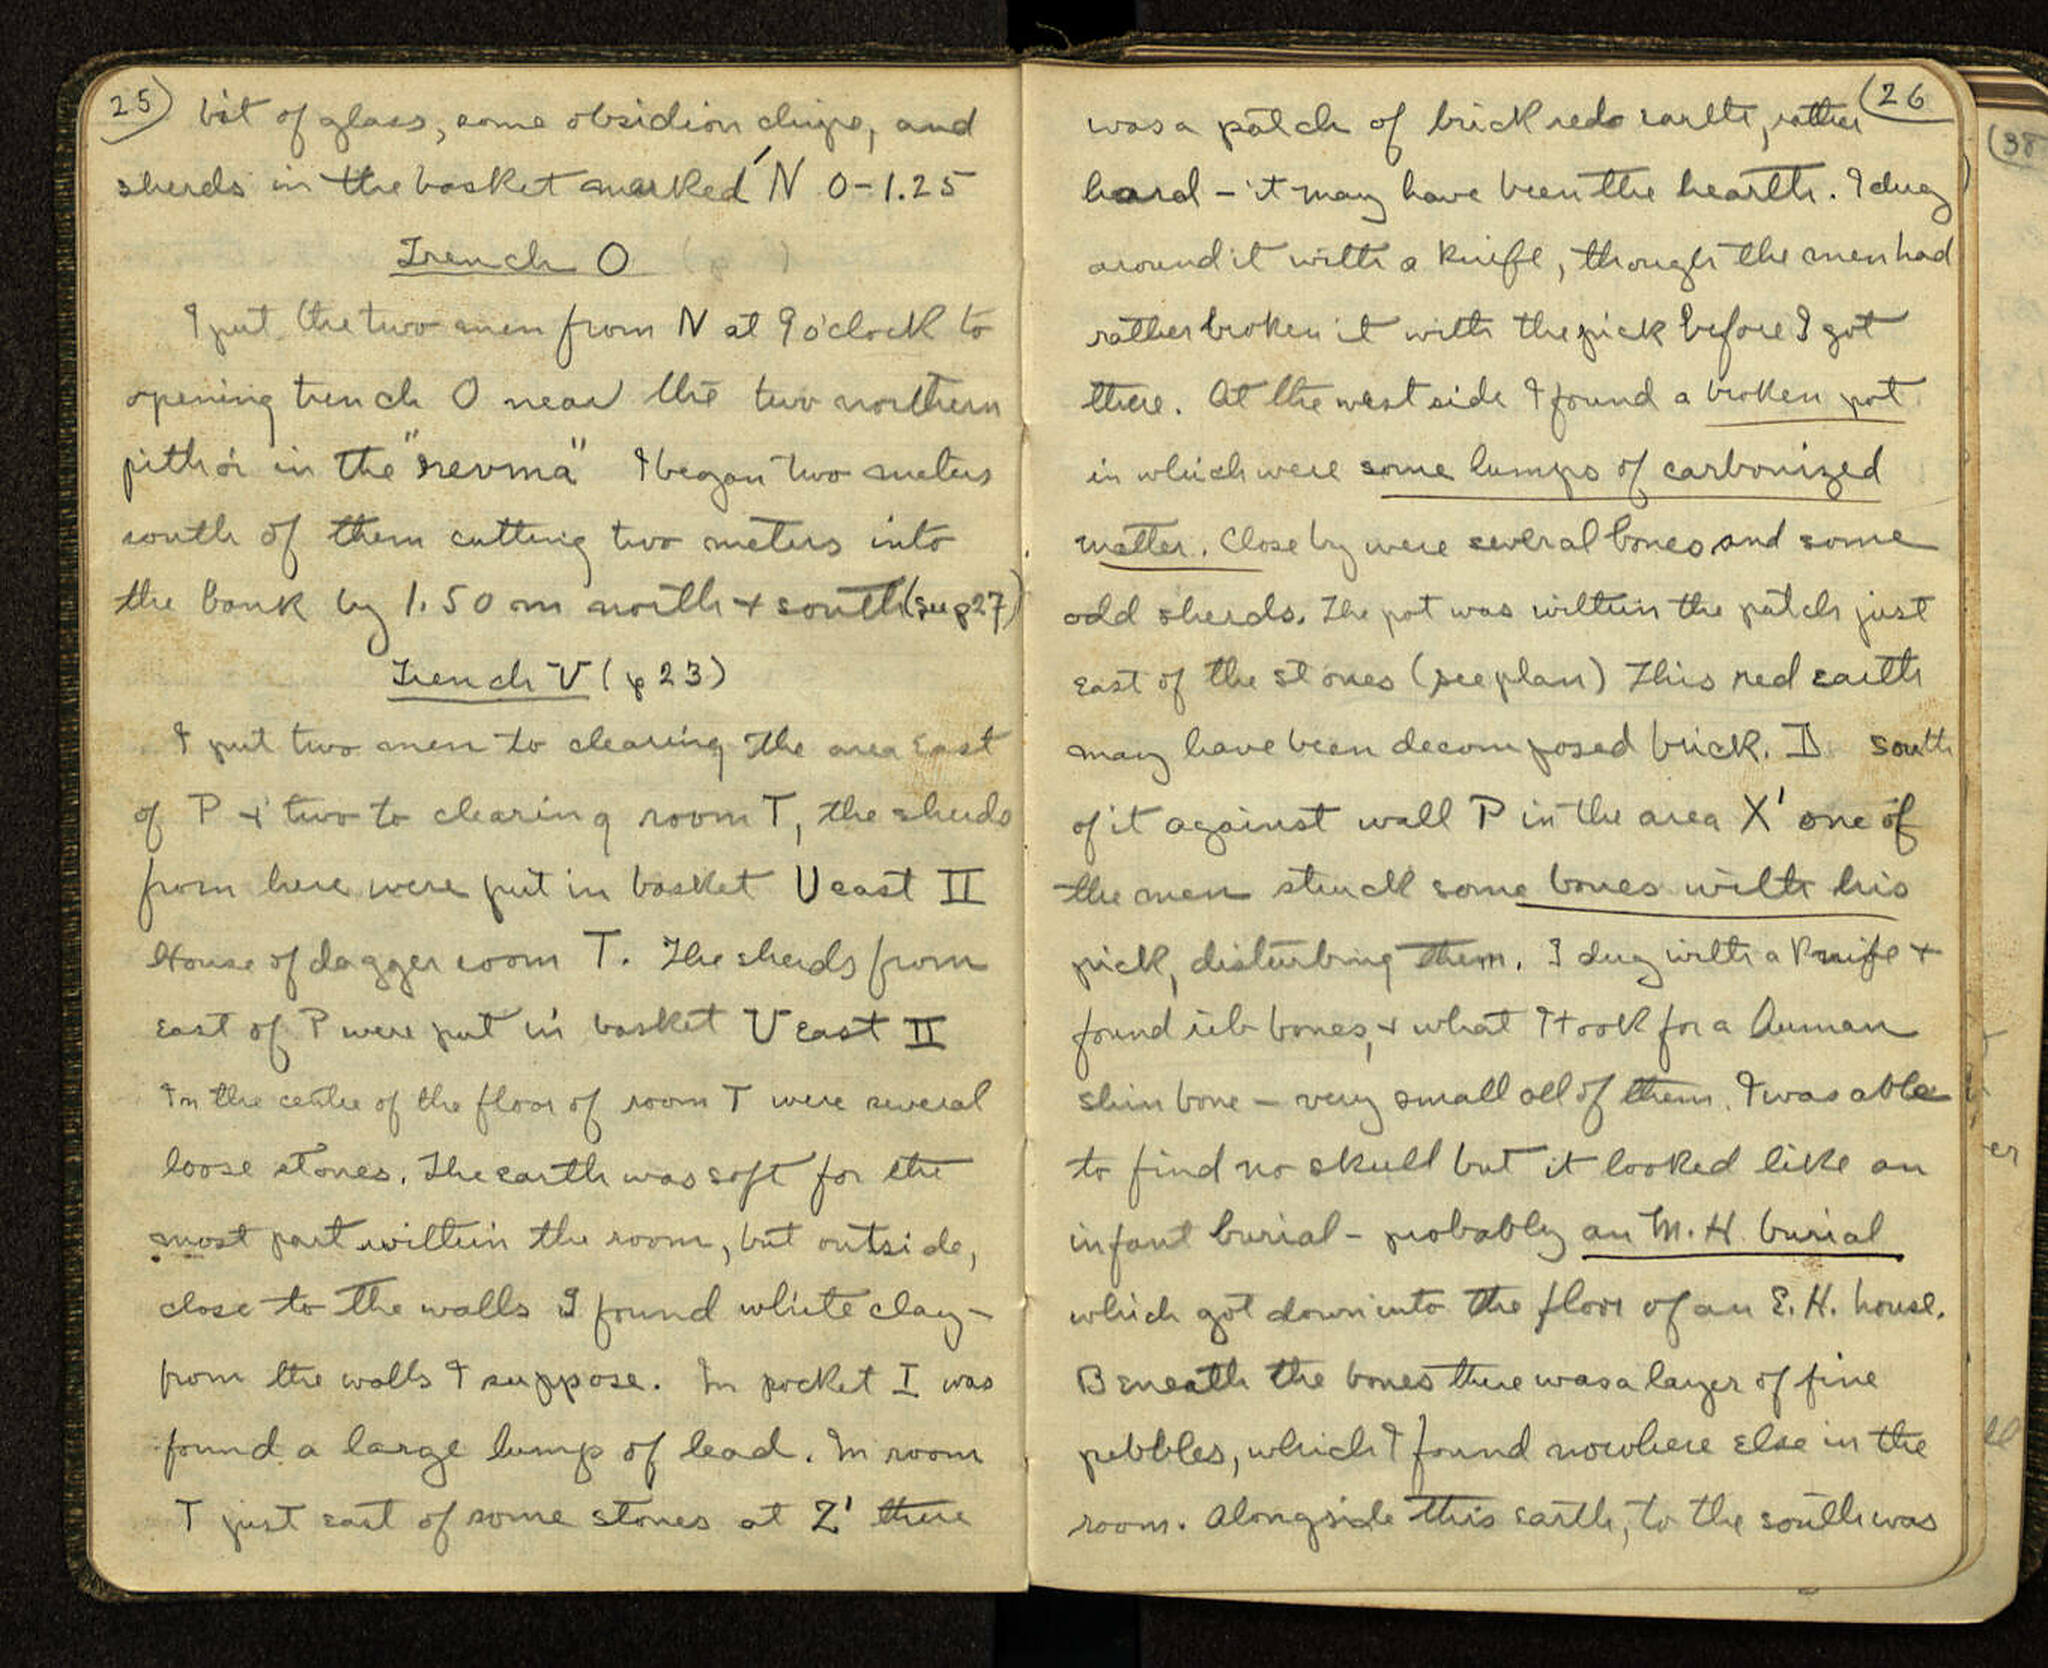 25)
bit of glass, some obsidion chips, and
sherds in the basket marked N 0-1.25
Trench O
I put the two men from N at 9 o'clock to
opening trench O near the two northern
pithoi in the "revma" I began two meters
south of them cutting two meters into
the bank by 1.50 m north + south (see p 27)
Trench V (p 23)
I put two men to clearing the area east
of P + two to clearing room T, the sherds
from here were put in basket U east II
House of dagger room T. The sherds from
east of P were put in basket U east II
In the centre of the floor of room T were several
loose stones. The earth was soft for the
most part within the room, but outside,
close to the walls I found white clay -
from the walls I suppose. In pocket I was
found a large lump of lead. In room
T just east of some stones at Z' there
(26
was a patch of brick red earth, rather
hard - it may have been the hearth. I dug
around it with a knife, though the men had
rather broken it with the pick before I got
there. At the west side I found a broken pot
in which were some lumps of carbonized
matter. Close by were several bones and some
odd sherds. The pot was within the patch just
east of the stones (see plan) This red earth
may have been decomposed brick. South
of it against wall P in the area X' one of
the men struck some bones with his
pick, disturbing them. I dug with a knife +
found rib bones, + what I took for a human
shin bone - very small all of them. I was able
to find no skull but it looked like an
infant burial - probably an M. H. burial
which got down into the floor of an E. H. house.
Beneath the bones there was a layer of fine
pebbles, which I found nowhere else in the
room. Alongside this earth, to the south was
(38
er